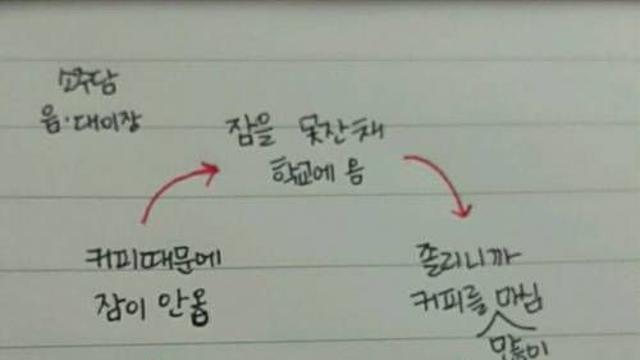 음·대이장
잠을 못잔채
학교에 옴
커피때문에
잠이 안옴
졸리니까
커피를 마심
많이